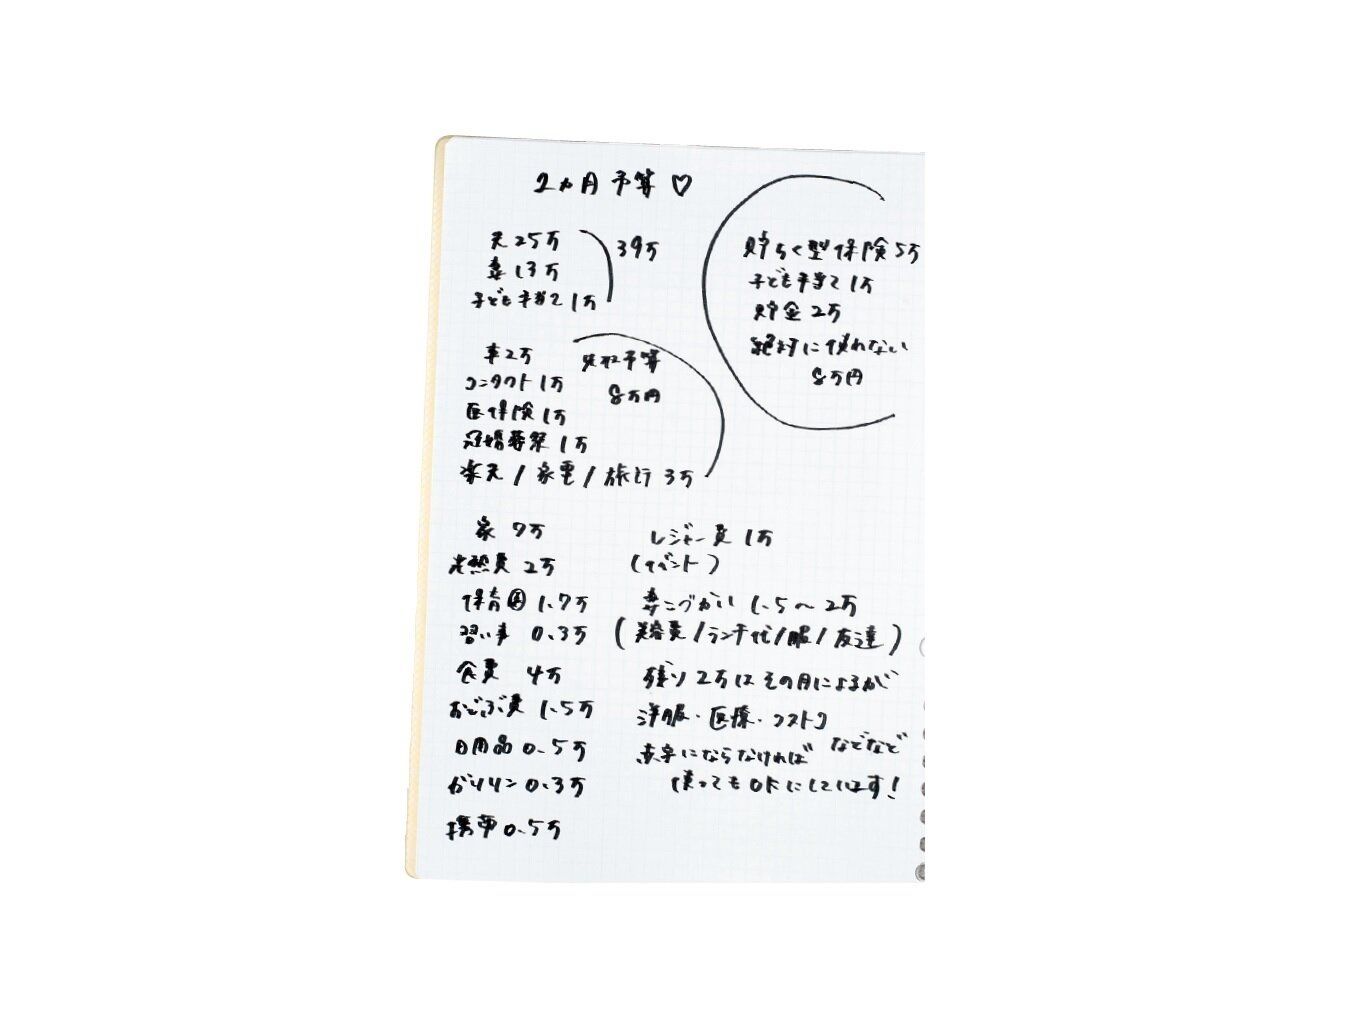 2ヵ月予算♡
夫25万
妻13万
子ども手当て1万
39万
貯ちく型保険5万
子ども手当て1万
貯金2万
絶対に使れない
8万円
車2万
コンタクト1万
医保険1万
冠婚葬祭1万
楽天/家電/旅行3万
先取予算
8万円
家7万
光熱費2万
保育園1.7万
習い事0.3万
食費4万
おどぶ費1.5万
日用品0.5万
ガソリン0.3万
携帯0.5万
レジャー費1万
(イベント)
妻こづかい1.5～2万
(美容費/ランチ代/服/友達)
残り2万はその月によるが
洋服・医療・コストコ
などなど
赤字にならなければ
使ってもOKにしています!